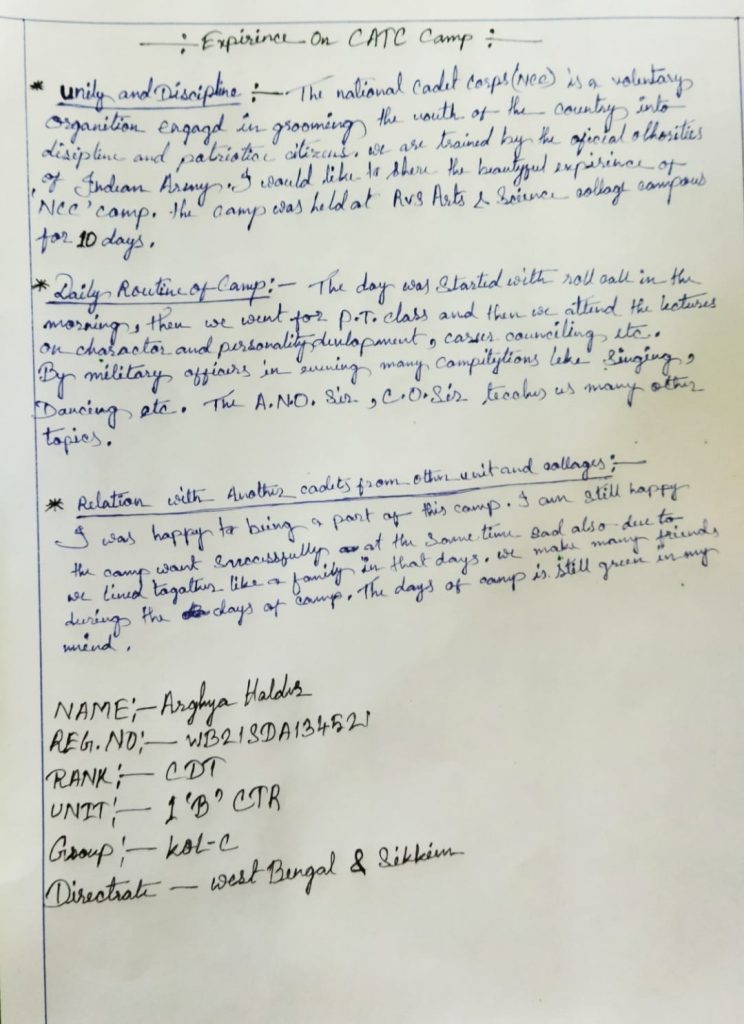 -: Expirince On CATC Camp :-
* Unily and Discipline :- The national Cadet Corps (NCC) is a voluntary
organition engagd in grooming the youth of the country into
disipline and patriotic citizens. we are trained by the oficial othorities
of Indian Aremy. I would like to share the beautyful expirince of
NCC' camp. the camp was held at RVS Arts & Science collage campous
for 10 days.
* Daily Routine of Camp:- The day was Started with roll call in the
morning, then we went for P.T. class and then we attend the lectures
on charactor and personality devlopment, carrer counciling etc.
By military officers in evening many campitytions leke Singing,
Dancing etc. The A.N.O. Sir, C.O. Sir teaches us many other
topics.
* Relation with Another cadits from other unit and collages :-
I was happy to being a part of this camp. I am still happy
the camp want Srrocessfully at the Same time Sad also due to
we lived togather like a family in that days. we make many friends
during the days of camp. The days of camp is still green in my
miend.
NAME:- Arghya Halder
REG. NO:- WB21SDA134521
RANK:- CDT
UNIT:- 1 'B' CTR
Group:- KOL-C
Directrate - west Bengal & Sikkim